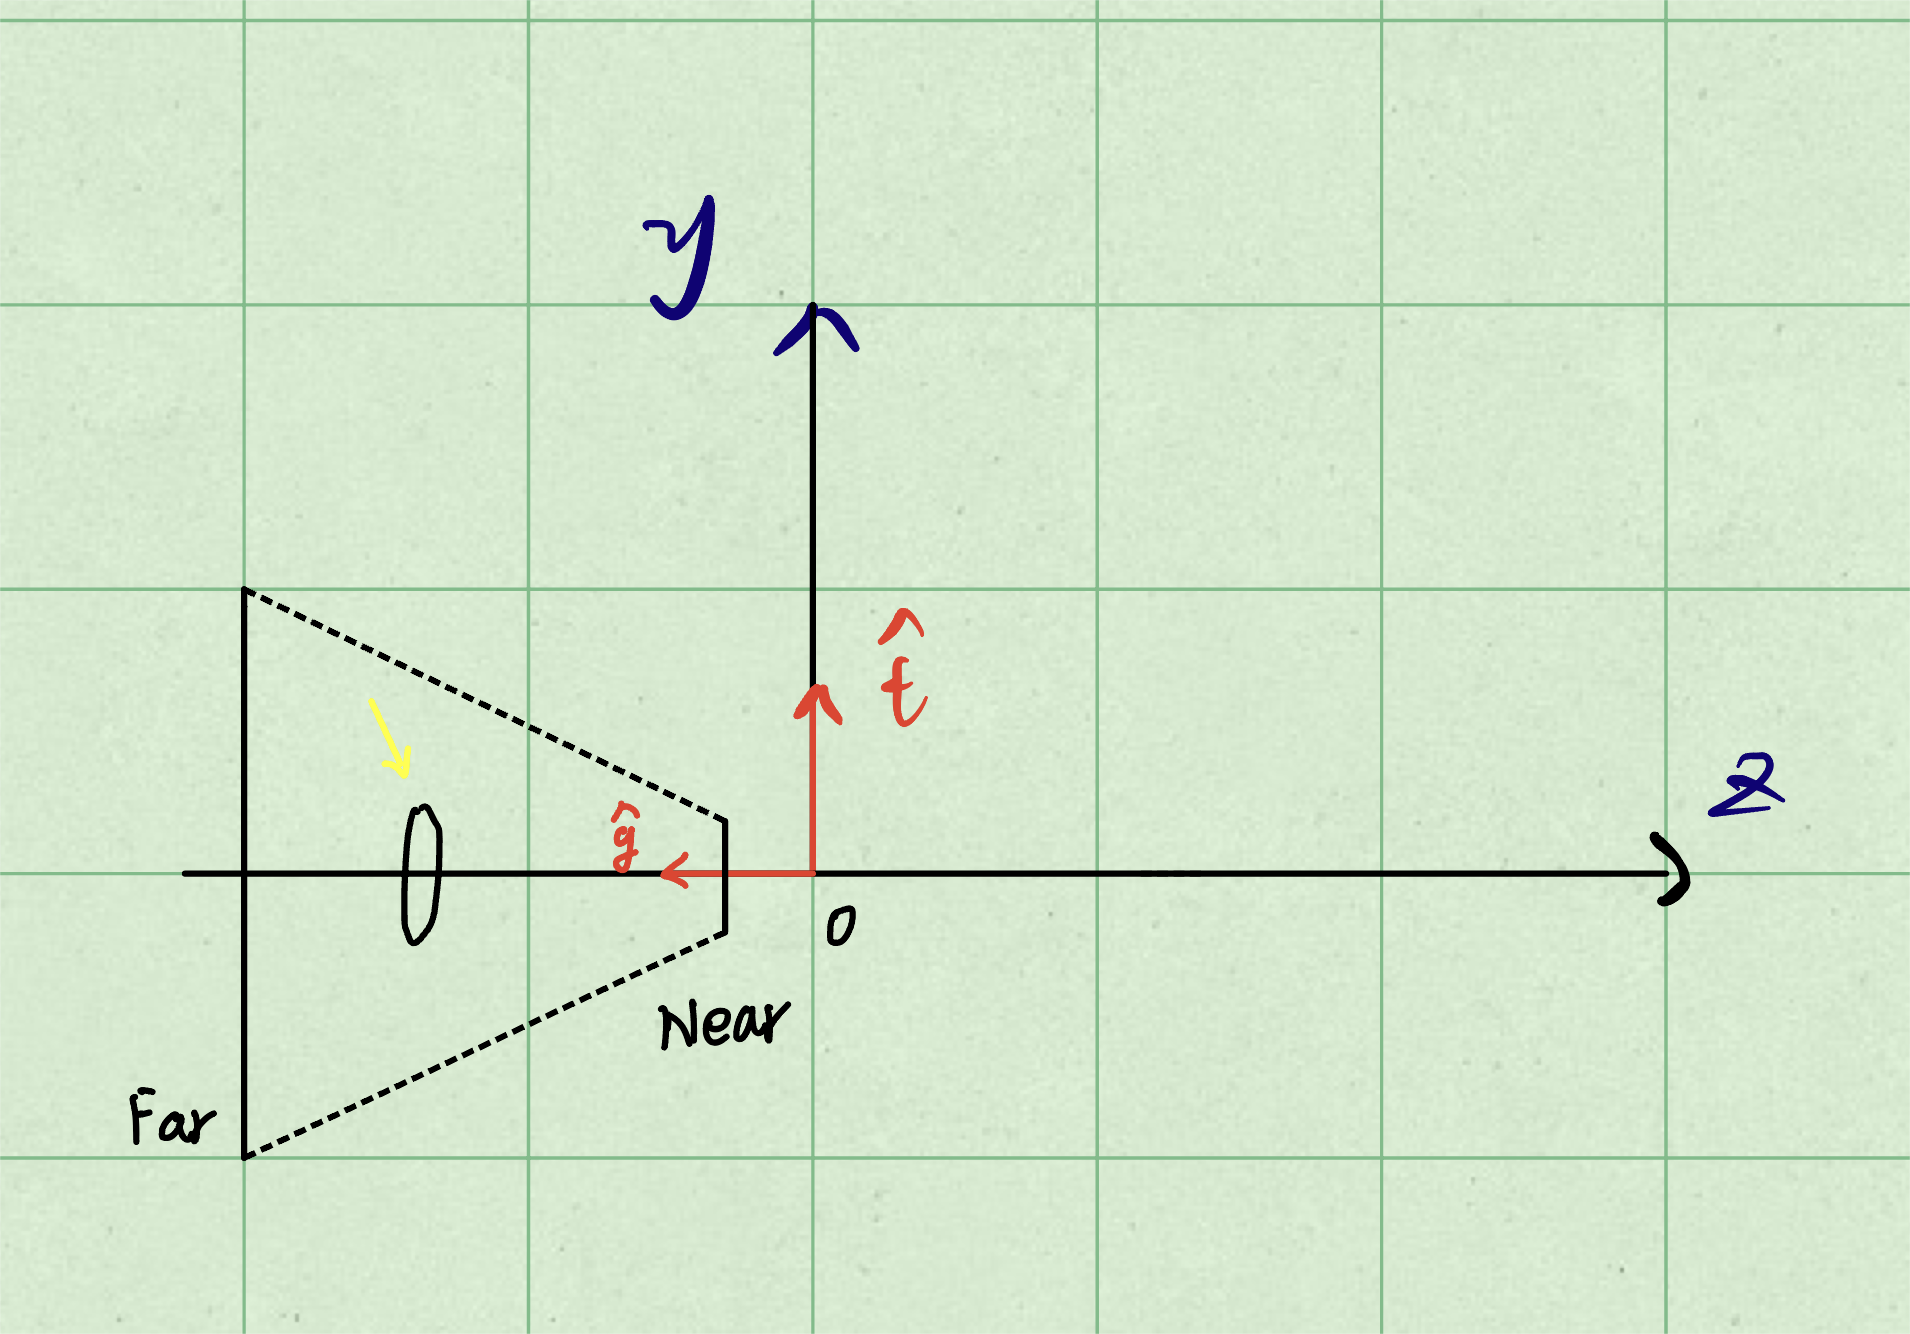 y
t̂
z
ĝ
0
Near
Far